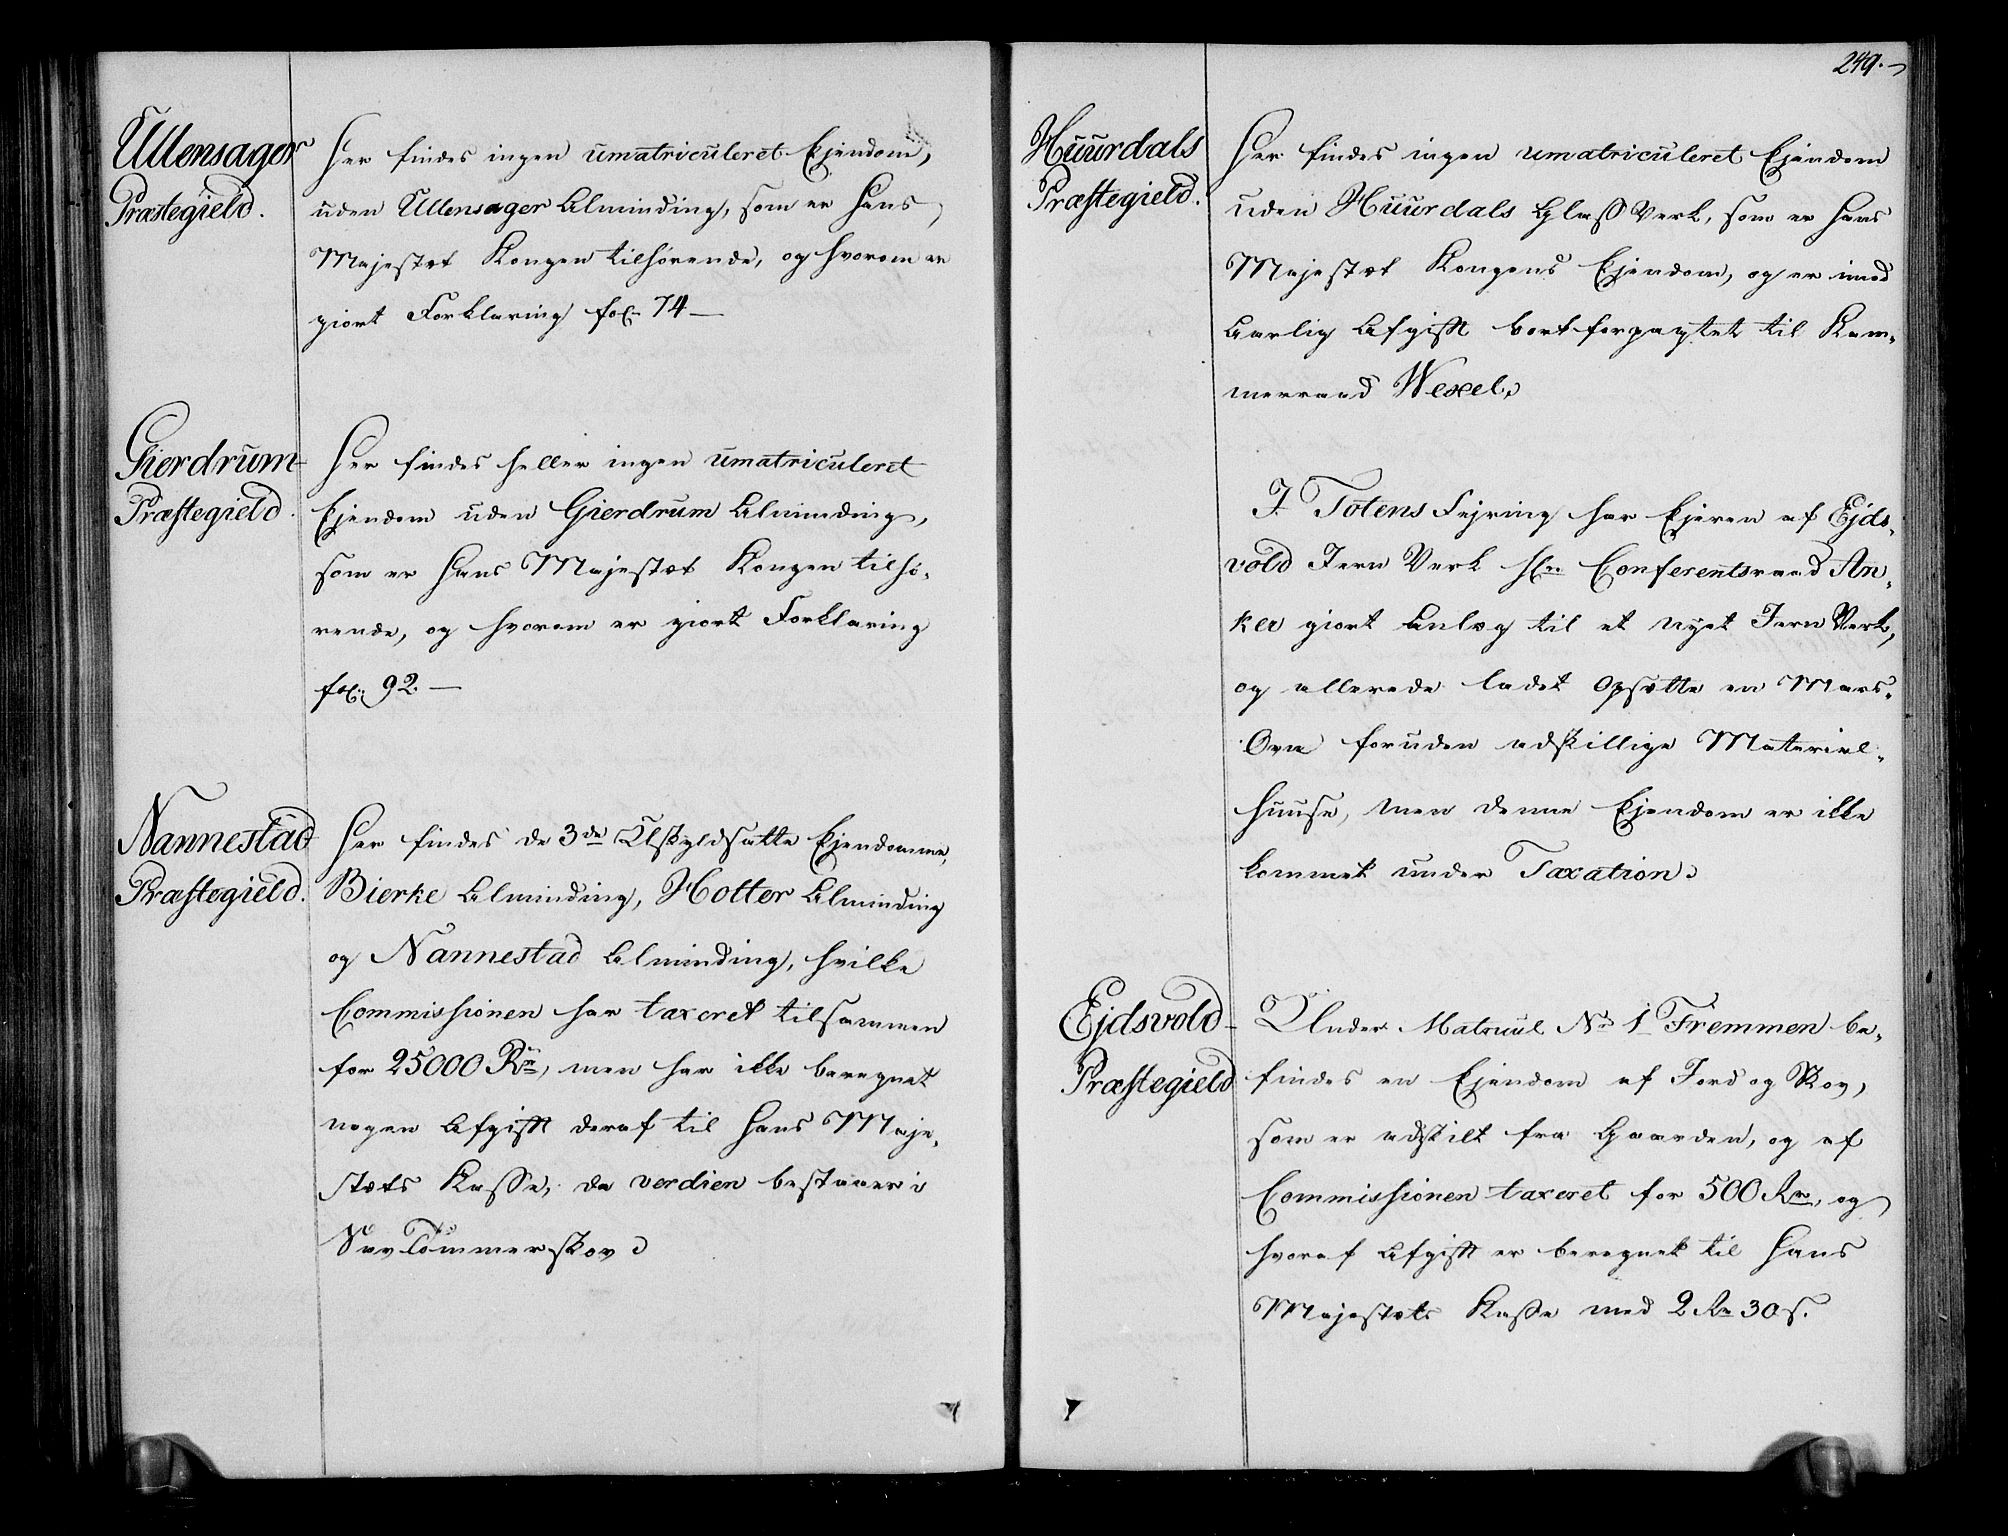 Ullensager
Præstegield.
Her findes ingen umatriculeret Ejendom,
uden Ullensager Alminding, som er Hans
Majestæt Kongen tilhørende, og hvorom er
giort Forklaring fol. 74 —
Gierdrum
Præstegield.
Her findes heller ingen umatriculeret
Ejendom uden Gierdrum Alminding,
som er Hans Majestæt Kongen tilhø-
rende, og hvorom er giort Forklaring
fol. 92. —
Nannestad
Præstegield.
Her findes de 3de Uskyldsatte Ejendomme,
Bierke Alminding, Hotter Alminding
og Nannestad Alminding, hvilke
Commissionen har taxeret tilsammen
for 25000 Rd, men har ikke beregnet
nogen Afgift deraf til Hans Maje-
stæts Kasse, da verdien bestaaer i
Sav Tømmerskov
249.
Huurdals
Præstegield.
Her findes ingen umatriculeret Ejendom
uden Huurdals Glass Verk, som er Hans
Majestæt Kongens Ejendom, og er imod
Aarlig Afgift bortforpagtet til Kam-
merraad Wexel.
I Totens Fejring har Ejeren af Ejds-
vold Jern Verk Hr. Conferentsraad An-
ker giort Anlæg til et nyet Jern Verk,
og allerede ladet Opsætte en Mars-
Ovn foruden adskillige Material-
huuse, men denne Ejendom er ikke
kommet under Taxation.
Ejdsvold
Præstegield
Under Matricul No 1 Fremmen be-
findes en Ejendom af Jord og Skov,
som er adskilt fra Gaarden, og af
Commissionen taxeret for 500 Rd, og
hvoraf Afgift er beregnet til Hans
Majestæts Kasse med 2 Rd 30 s.